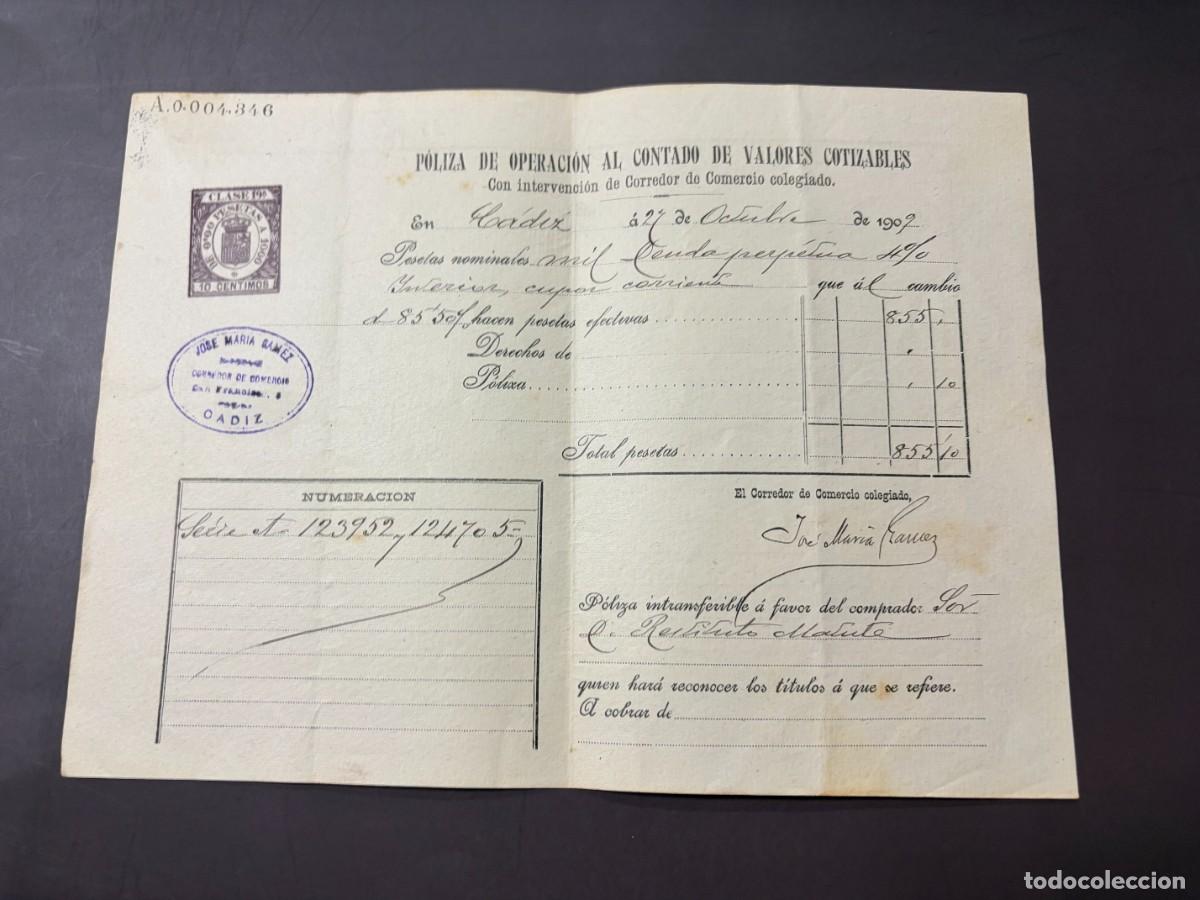 A.0.004.346
PÓLIZA DE OPERACIÓN AL CONTADO DE VALORES COTIZABLES
Con intervención de Corredor de Comercio colegiado.
CLASE 19ª
DE 0'00 PESETAS A 1000
10 CENTIMOS
En Cádiz á 27 de Octubre de 1909
Pesetas nominales mil Deuda perpétua 4%
Interior, cupon corriente que ál cambio
d 85'50% hacen pesetas efectivas 855,
Derechos de
Póliza , 10
Total pesetas 855'10
JOSE MARIA GAMEZ
CORREDOR DE COMERCIO
San Francisco, 8
CADIZ
NUMERACION
Série A 123952 y 124705=
El Corredor de Comercio colegiado,
José María Gamez
Póliza intransferible á favor del comprador Sor
D. Restituto Matute
quien hará reconocer los títulos á que se refiere.
A cobrar de
todocoleccion